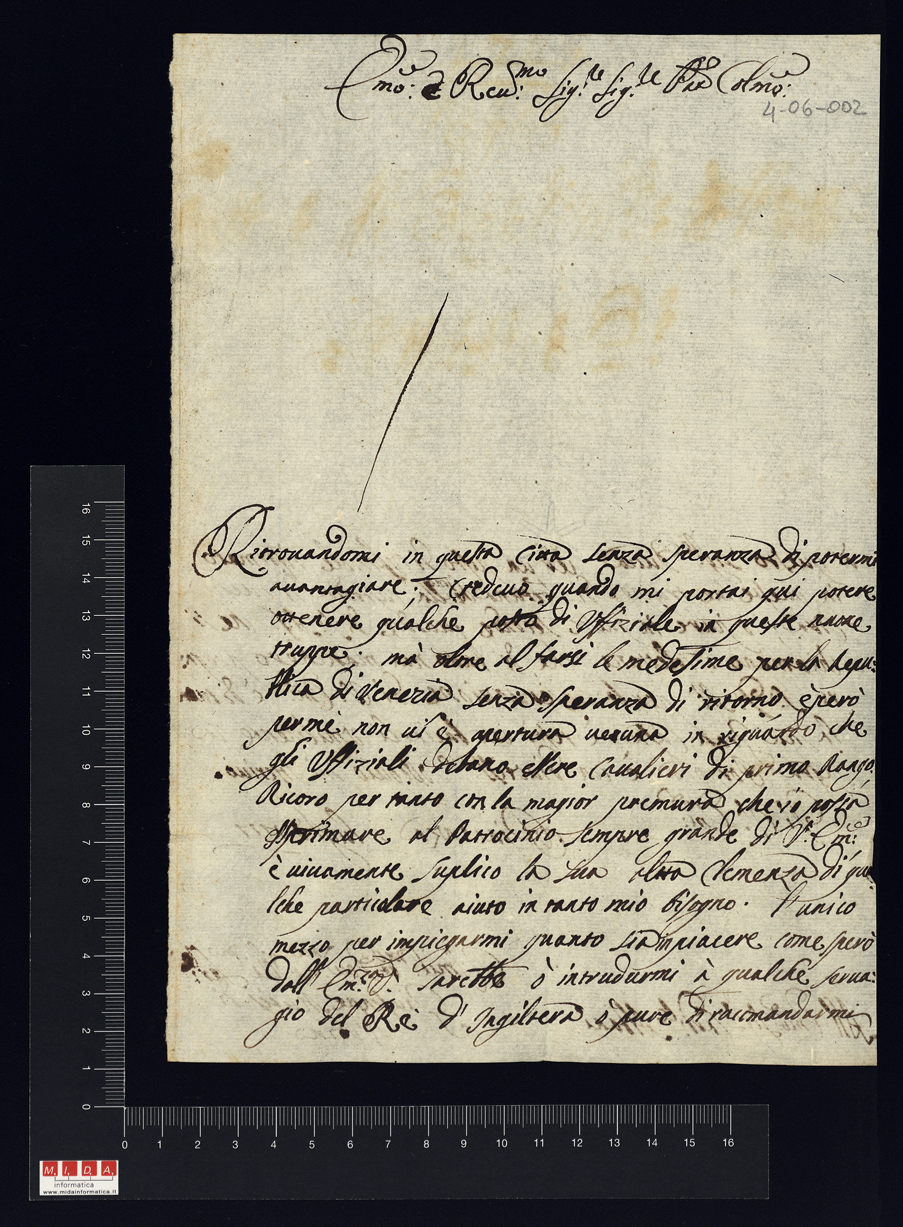 Emo: e Reu:mo Sig:re Sig:re Pad Colmo:
4-06-002
Ritrouandomi in questa Città senza speranza di potermi
auantagiare; credeuo quando mi portai qui potere
ottenere qualche posto di Uffiziale in queste nuove
truppe; mà oltre al farsi le medesime per la Repu:
blica di Venezia senza speranza di ritorno, è però
per me non ui è apertura ueruna in riguardo che
gli Uffiziali debano essere Caualieri di primo Rango.
Ricoro per tanto con la magior premura che io possa
esprimere al Patrocinio sempre grande di V: Emza
è uiuamente suplico la sua alta Clemenza di qua
lche particolare aiuto in tanto mio bisogno. L'unico
mezzo per impiegarmi quanto come sperò
dall' Emza V: sarebbe ò intrudurmi à qualche serua:
gio del Rè d'Ingiltera ò pure di racmandarmi
16
15
14
13
12
11
10
9
8
7
6
5
4
3
2
1
0
0 1 2 3 4 5 6 7 8 9 10 11 12 13 14 15 16
M. I. D. A.
informatica
www.midainformatica.it